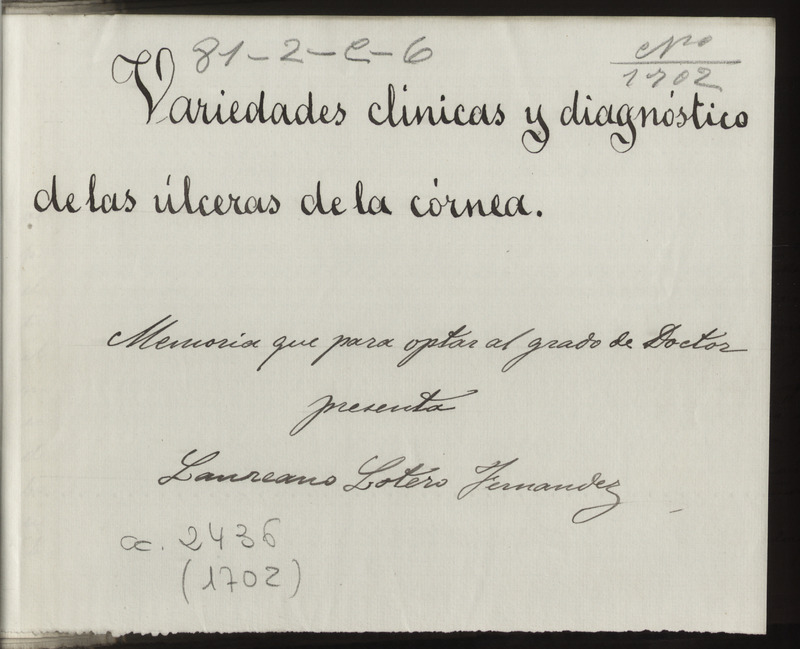 81-2-C-6
Nº
1702
Variedades clínicas y diagnóstico
de las úlceras de la córnea.
Memoria que para optar al grado de Doctor
presenta
Laureano Lotero Fernandez
ca. 2436
(1702)